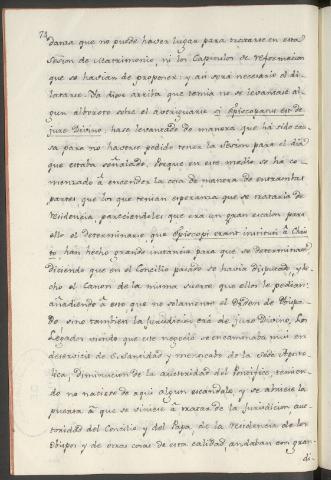 danza que no puede haver lugar para tratarse en esta
Sesion de Matrimonio, ni los Capitulos de reformacion
que se havian de proponer, y asi será necesario el di-
latarse. Ya dixe arriba que temia no se levantase al-
gun alboroto sobre el averiguarse si Episcopatus est de
jure Divino, hase levantado de manera que há sido cau-
sa para no haverse podido tener la Sesion para el dia
que estaba señalado. Porque en este medio se há co-
menzado á encender la cosa de manera de entrambas
partes, que los que tenian esperanza que se trataria de
residencia, pareciendoles que era un gran escalon para
ello el determinarse que Episcopi erant instituti á Chris-
to han hecho grande instancia para que se determinase
diciendo que en el Concilio pasado se havia disputado, y he-
cho el Canon de la misma suerte que ellos le pedian:
añadiendo á esto que no solamente el Orden de Obispa-
do sino tambien la Jurisdicion era de jure Divino, Los
Legados viendo que este negocio se encaminaba mui en
deservicio de S. Santidad y menoscabo de la Sede Aposto-
lica, diminucion de la autoridad del Pontifice, temien-
do no naciese de aqui algun escandalo, y se abriese la
puerta á que se viniese á tratar de la Jurisdicion, auc-
toridad del Concilio y del Papa, de la residencia de los
Obispos y de otras cosas de esta calidad, andaban con gran
di-